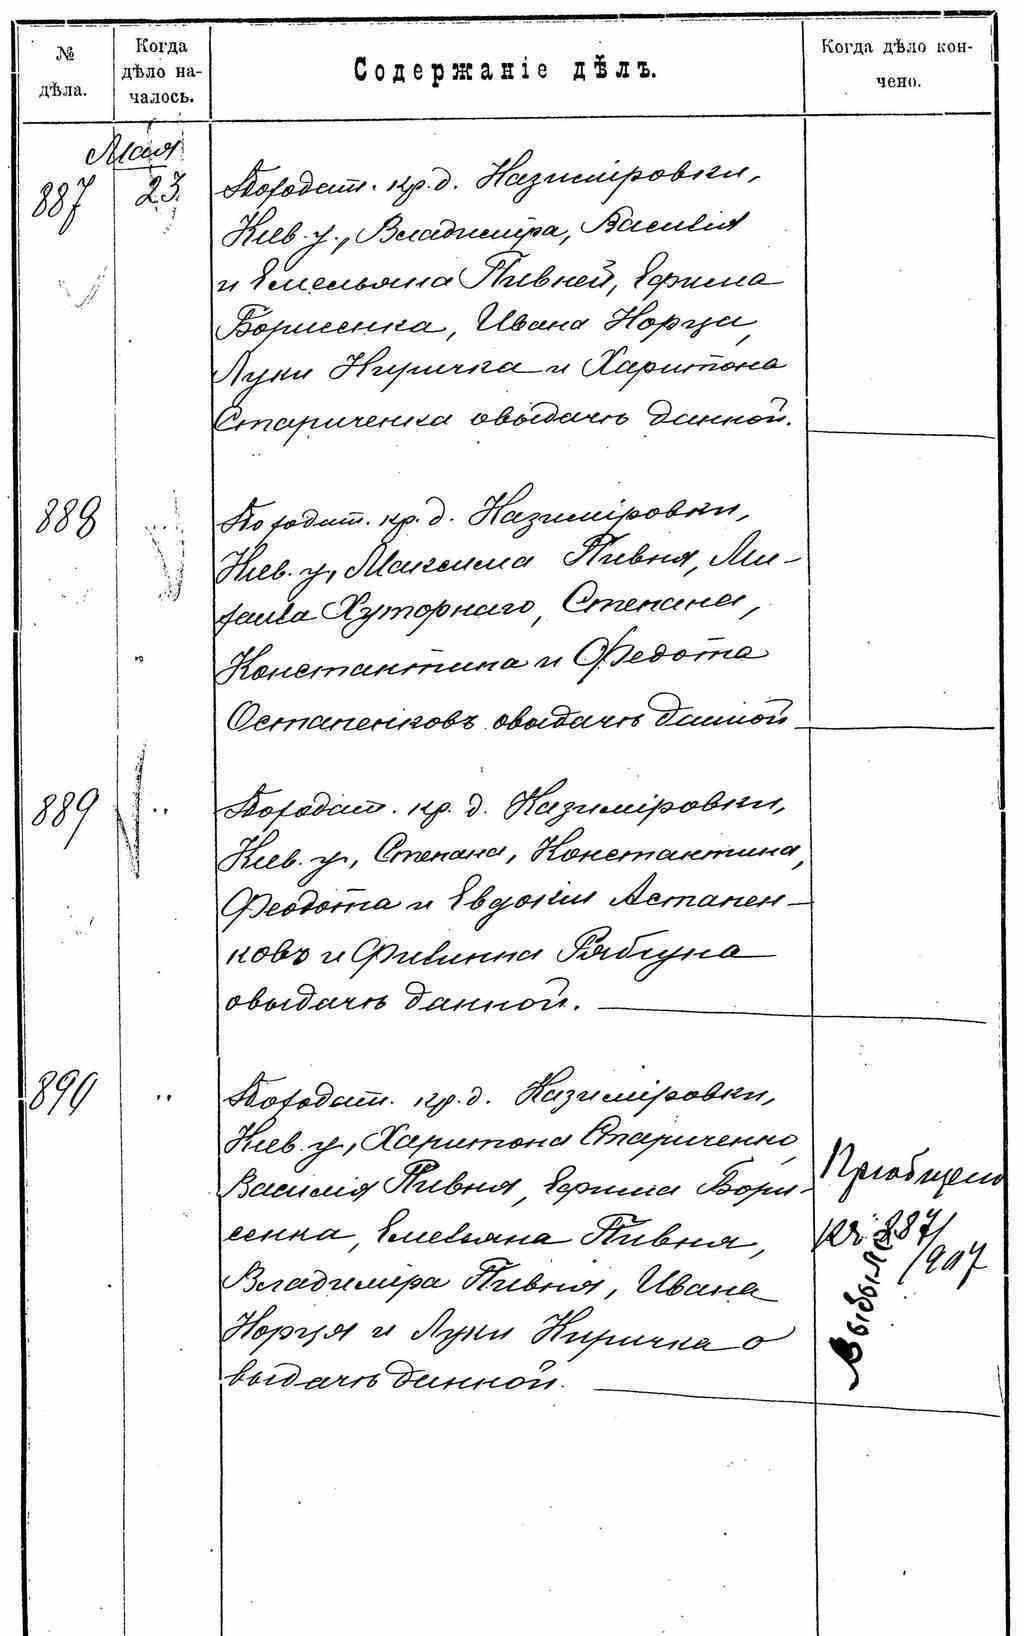 №
дѣла.
Когда
дѣло на-
чалось.
Содержаніе дѣлъ.
Когда дѣло кон-
чено.
Мая
887
23.
По ходат. кр. д. Казиміровки,
Кіев. у., Владиміра, Василія
и Емельяна Пивней, Ефима
Борисенка, Ивана Норца,
Луки Киричка и Харитона
Стариченка о выдачѣ данной.
888
По ходат. кр. д. Казиміровки,
Кіев. у., Максима Пивня, Ми-
хаила Хуторнаго, Степана,
Константина и Федота
Остапенковъ о выдачѣ данной
889
"
По ходат. кр. д. Казиміровки,
Кіев. у., Степана, Константина,
Феодота и Евдокіи Астапен-
ковъ и Филиппа Рябуна
о выдачѣ данной.
890
"
По ходат. кр. д. Казиміровки,
Кіев. у., Харитона Стариченко,
Василія Пивня, Ефима Бори-
сенка, Емельяна Пивня,
Владиміра Пивня, Ивана
Норця и Луки Киричка о
выдачѣ данной.
Пріобщено
къ 887/
/907
Выбыло